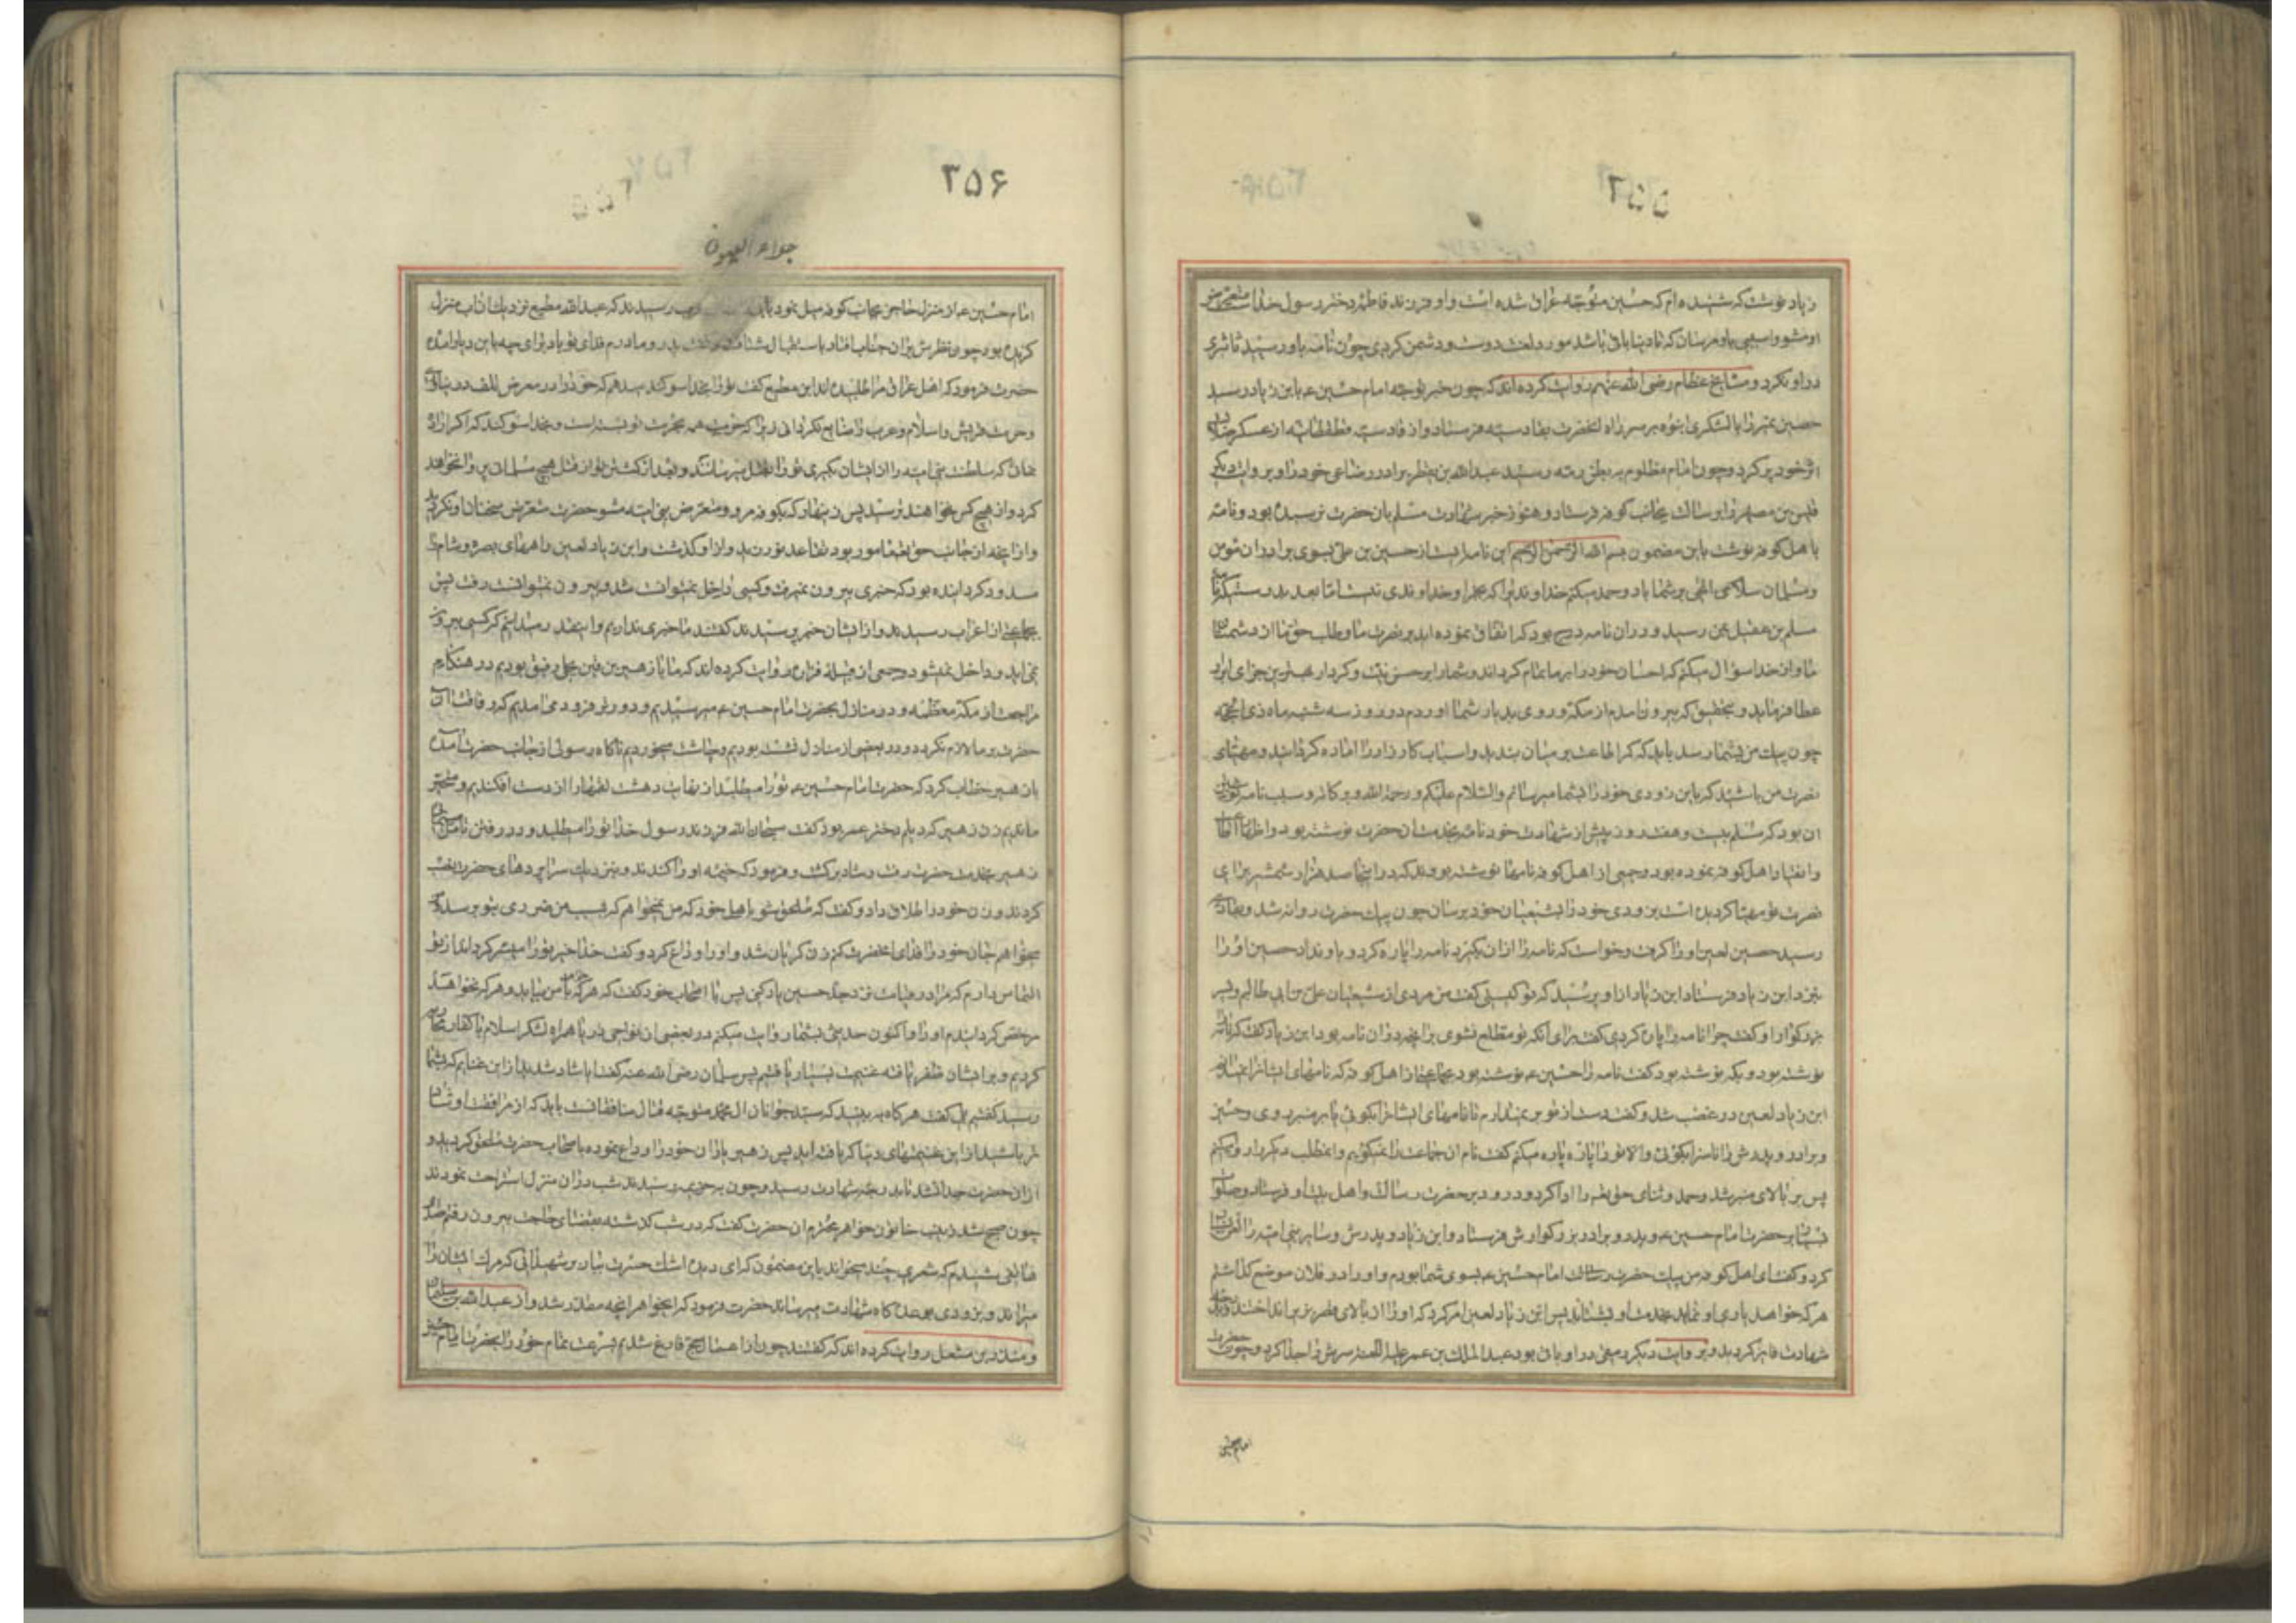 ۲۵۵
زیاد نوشت که شنیده ام که حسین متوجه عراق شده است و او فرزند فاطمه دختر رسول خدا است متعرض
او مشو و اسیبی باو مرسان که تا دنیا باقی باشد مورد لعنت دوست و دشمن کردی چون نامه باو رسید تاثیری
در او نکرد و مشایخ عظام رضی الله عنهم روایت کرده اند که چون خبر توجه امام حسین ع بابن زیاد رسید
حصین بن نمیر را با لشکری انبوه بر سر راه انحضرت بقادسیه فرستاد و از قادسیه تا قطقطانیه از عسکر
اثر خود پر کرد و چون امام مظلوم به بطن رمه رسید عبدالله بن یقطر برادر رضاعی خود را و بروایت دیگر
قیس بن مصهر را برسالت بجانب کوفه فرستاد و هنوز خبر شهادت مسلم بان حضرت نرسیده بود و نامه
باهل کوفه نوشت باین مضمون بسم الله الرحمن الرحیم این نامه ایست از حسین بن علی بسوی برادران مومن
و مسلمان سلام الهی بر شما باد و حمد میکنم خداوندی را که بجز او خداوندی نیست اما بعد بدرستیکه
مسلم بن عقیل بمن رسید و در ان نامه درج بود که اتفاق نموده اید بر نصرت ما و طلب حق ما از دشمنان
ما و از خدا سؤال میکنم که احسان خود را بر ما تمام کرداند و شما را بر حسن نیت و کردار بهترین جزای ابرار
عطا فرماید و بتحقیق که بیرون امدم از مکه و روی بدیار شما اوردم در روز سه شنبه ماه ذی الحجه
چون پیک من بشما رسد باید که کمر اطاعت بر میان بندید و اسباب کارزار را اماده کردانید و مهیای
نصرت من باشید که باین زودی خود را بشما میرسانم والسلام علیکم و رحمة الله و برکاته و سبب نامه نوشتن
ان بود که مسلم بیست و هفت روز پیش از شهادت خود نامه بخدمت ان حضرت نوشته بود و اظهار اطاعت
و انقیاد اهل کوفه نموده بود و جمعی از اهل کوفه نامها نوشته بودند که در اینجا صد هزار شمشیر برای
نصرت تو مهیا کردیده است بزودی خود را بشیعیان خود برسان چون پیک حضرت روانه شد و بقادسیه
رسید حصین لعین او را کرفت و خواست که نامه را از ان بکیرد نامه را پاره کرد و باو نداد حصین او را
بنزد ابن زیاد فرستاد ابن زیاد از او پرسید که تو کیستی کفت من مردی از شیعیان علی بن ابی طالبم و پسر
بزرکوار او کفت چرا نامه را پاره کردی کفت برای آنکه تو مطلع نشوی بر انچه در ان نامه بود ابن زیاد کفت که نامه
نوشته بود و بکه نوشته بود کفت نامه را حسین ع نوشته بود بجماعتی از اهل کوفه که نامهای ایشانرا نمیدانم
ابن زیاد لعین در غضب شد و کفت دست از تو بر نمیدارم تا نامهای ایشانرا بکوئی یا بر منبر روی و حسین
و برادر و پدرش را ناسزا بکوئی و الا تو را پاره پاره میکنم کفت نام ان جماعت را نمیکویم و
پس بر بالای منبر شد و حمد و ثنای حق تعالی را ادا کرد و درود بر حضرت رسالت و اهل بیت او فرستاد و صلوات
بسیار بر حضرت امام حسین ع و پدر و برادر بزرکوارش فرستاد و ابن زیاد و پدرش و سایر بنی امیه را لعن
کرد و کفت ای اهل کوفه من پیک حضرت امام حسین ع بسوی شما بودم و او را در فلان موضع کذاشتم
هر که خواهد یاری او نماید بخدمت او بشتابد پس ابن زیاد لعین امر کرد که او را از بالای قصر بزیر انداختند و بدرجه
شهادت فایز کردید و بروایت دیکر رمقی در او باقی بود عبدالملک بن عمیر علیه اللعنه سرش را جدا کرد و چون حضرت
امام حسین
۲۵۶
جلاء العیون
امام حسین ع از منزل حاجز بجانب کوفه میل نمود رسیدند که عبدالله مطیع نزدیک ان اب منزل
کزیده بود چون نظرش بران جناب افتاد باستقبال شتافت و کفت پدر و مادرم فدای تو باد برای چه باین دیار امده
حضرت فرمود که اهل عراق مرا طلبیده اند ابن مطیع کفت تو را بخدا سوکند میدهم که خود را در معرض تلف در نیاوری
و حرمت قریش و اسلام و عرب را ضایع نکردانی زیرا که حرمت همه بحرمت تو بسته است و بخدا سوکند که اکر اراده
نمائی که سلطنت بنی امیه را از ایشان بکیری تو را بقتل میرسانند و بعد از کشتن تو از قتل هیچ مسلمان پروا نخواهند
کرد و از هیچ کس نخواهند ترسید پس زینهار که بکوفه مرو و متعرض بنی امیه مشو حضرت متعرض سخنان او نکردید
و از انچه از جانب حق تعالی مامور بود تقاعد نورزید و از او کذشت و ابن زیاد لعین راههای بصره و شام را
مسدود کردانیده بود که خبری بیرون نمیرفت و کسی داخل نمیتوانست شد و بیرون نمیتوانست رفت پس
بجماعتی از اعراب رسیدند و از ایشان خبر پرسیدند کفتند ما خبری نداریم و اینقدر میدانیم که کسی بیرون
نمی اید و داخل نمیشود و جمعی از قبیله فزاره روایت کرده اند که ما با زهیر بن قین بجلی رفیق بودیم در هنکام
مراجعت از مکه معظمه و در منازل بحضرت امام حسین ع میرسیدیم و دورتر فرود می امدیم که رفاقت ان
حضرت بر ما لازم نکردد و در بعضی از منازل نشسته بودیم و چاشت میخوردیم ناکاه رسولی از جانب حضرت آمده
بازهیر خطاب کرد که حضرت امام حسین ع تو را میطلبد از نهایت دهشت لقمها را از دست افکندیم و متحیر
ماندیم زن زهیر که دیلم دختر عمر بود کفت سبحان الله فرزند رسول خدا تو را میطلبد و در رفتن تامل مینمائی
زهیر بخدمت حضرت رفت و شاد برکشت و فرمود که خیمه او را کندند و بنزدیک سراپردهای حضرت نصب
کردند و زن خود را طلاق داد و کفت که ملحق شو باهل خود که من نمیخواهم که بسبب من ضرری بتو برسد که
میخواهم جان خود را فدای انحضرت کنم زن کریان شد و او را وداع کرد و کفت خدا خیر تو را میسر کرداند از تو
التماس دارم که مرا در قیامت نزد جد حسین یاد کنی پس با اصحاب خود کفت که هر که با من بیاید و هر که نخواهد
مرخص کردانیدم او را و اکنون حدیثی بشما روایت میکنم در بعضی از نواحی دریا همراه لشکر اسلام با کفار محاربه
کردیم و بر ایشان ظفر یافته غنیمت بسیار یافتیم پس سلمان رضی الله عنه کفت ایا شاد شدید از این غنایم که بشما
رسید کفتیم بلی کفت هرکاه به بینید که سید جوانان ال محمد متوجه قتال منافقانست باید که از مرافقت او شاد
تر باشید از این غنیمتهای دنیا که یافته اید پس زهیر یاران خود را وداع نموده باصحاب حضرت ملحق کردید و
از ان حضرت جدا نشد تا بدرجه شهادت رسید و چون بخزیمیه رسیدند شب در ان منزل استراحت نمودند
چون صبح شد زینب خاتون خواهر محترم ان حضرت کفت که در شب کذشته بقضای حاجت بیرون رفتم صدای
هاتفی شنیدم که شعری چند میخواند باین مضمون که ای دیده اشک حسرت ببار بر شهیدانی که مرک ایشان را
میراند و بزودی بوعده کاه شهادت میرساند حضرت فرمود که ایخواهر انچه مقدر شد و از عبدالله بن سلیمان
و منذر بن مشعل روایت کرده اند که کفتند چون از اعمال حج فارغ شدیم بسرعت تمام خود را بحضرت امام حسین